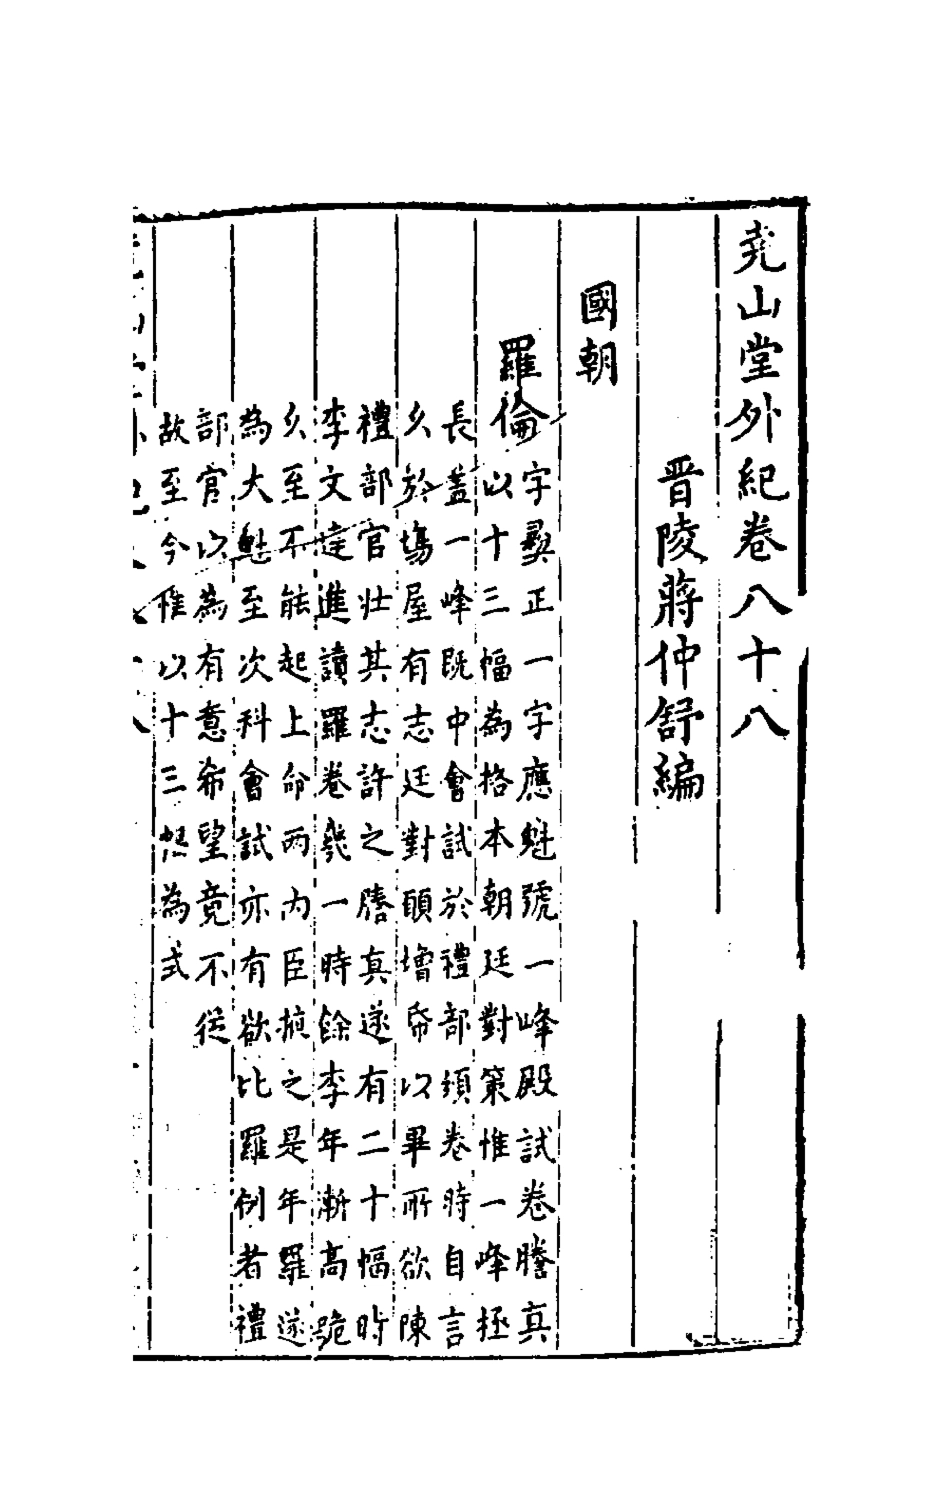 尭山堂外紀卷八十八
晋陵蔣仲舒編
國朝
羅倫
字彞正一字應魁號一峰殿試卷謄真
以十三幅為格本朝廷對策惟一峰極
長蓋一峰既中會試於禮部領卷時自言
久於塲屋有志廷對願增帋以畢所欲陳
禮部官壮其志許之謄真遂有二十幅时
李文逹進讀羅卷幾一時餘李年漸高跪
久至不能起上命两内臣掖之是年羅遂
為大魁至次科會試亦有欲比羅例者禮
部官以為有意希望竟不從
故至今惟以十三為式